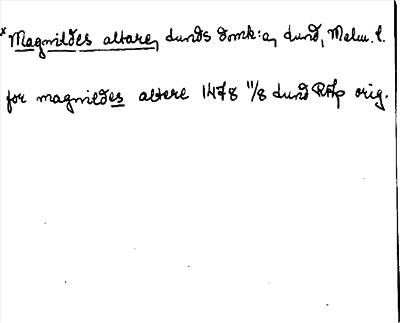 × Magnildes altare, Lunds domk:a, Lund, Malm. l.
for magnildes altere 1478 11/8 Lund RAp orig.